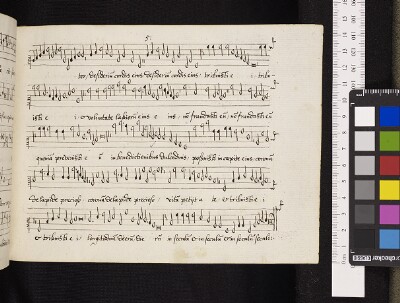 5.
tor, desiderium cordis eius desiderium cordis eius: tribuisti e i: tribu
isti e i: et voluntate labiorum eius e ius: nō fraudasti eū; nō fraudasti eū
quoniā prevenisti e ū in benedictionibus dulcedinis: posuisti in capite eius coronā
de lapide precioso coronā de lapide precioso: vitā petijt a te et tribuisti e i:
et tribuisti e i: longitudinē dierū in seculū et in seculū et in seculū seculi: